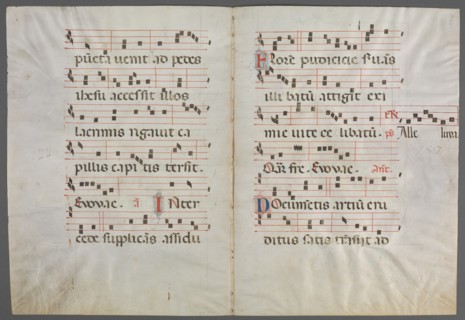 pūcta uenit ad pedes
ihesu accessit illos
lacrimis rigauit ca
pillis capi tis tersit.
Evovae. a I Nter
cede supplicās assidu
F Lore pudicicie suāis
illi batū attigit exi
mie uite ce libatū. ps Alle luya
Evovae. Añt.
D Ocumētis artiū eru
ditus satis trāsijt ad